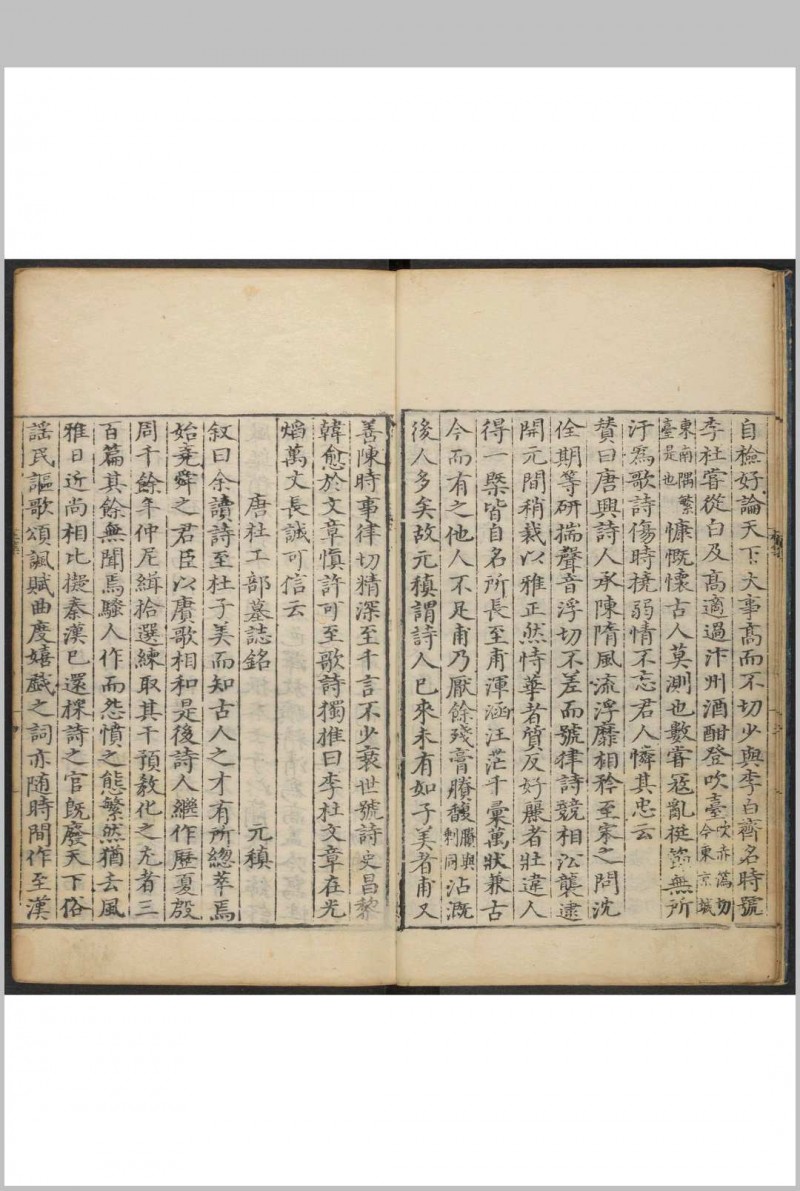 自檢好論天下大事髙而不切少與李白齊名時號
李杜嘗從白及髙適過汴州酒酣登吹臺吹赤偽切今東京城
東南隅繁臺是也慷慨懷古人莫測也數嘗寇亂挺節無所
汙爲歌詩傷時撓弱情不忘君人憐其忠云
賛曰唐興詩人承陳隋風流浮靡相矜至宋之問沈
佺期等研揣聲音浮切不差而號律詩競相沿襲逮
開元間稍裁以雅正然恃華者質反好麗者壯違人
得一槩皆自名所長至甫渾涵汪茫千彙萬狀兼古
今而有之他人不足甫乃厭餘殘膏賸馥賸與剰同沾溉
後人多矣故元稹謂詩人已來未有如子美者甫又
善陳時事律切精深至千言不少衰世號詩史昌黎
韓愈於文章愼許可至歌詩獨推曰李杜文章在光
焰萬丈長誠可信云
唐杜工部墓誌銘 元稹
叙曰余讀詩至杜子美而知古人之才有所緫萃焉
始堯舜之君臣以賡歌相和是後詩人繼作歴夏殷
周千餘年仲尼緝拾選練取其干預教化之尤者三
百篇其餘無聞焉騷人作而怨憤之態繁然猶去風
雅日近尚相比擬秦漢已還採詩之官旣廢天下俗
謡民謳歌頌諷賦曲度嬉戲之詞亦随時間作至漢